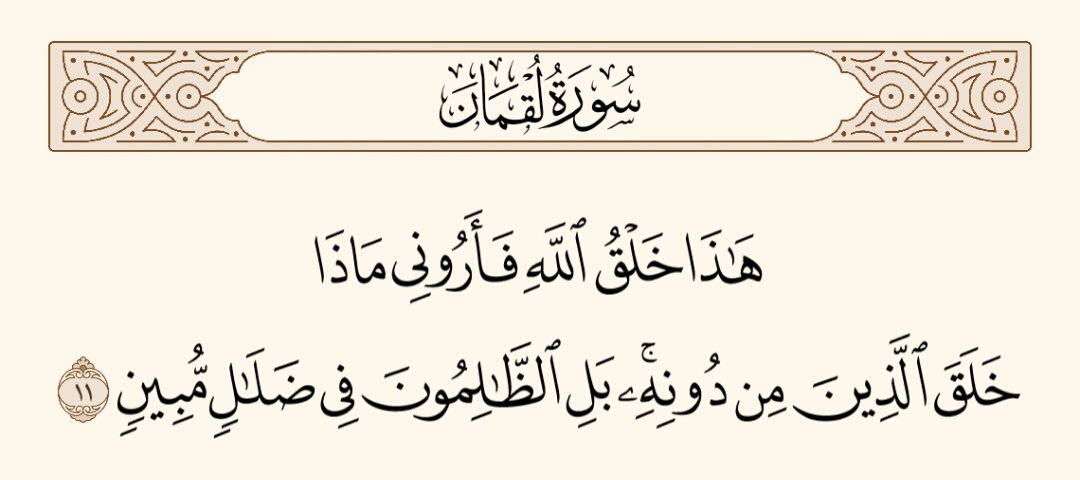 سُورَةُ لُقْمَانَ
هَٰذَا خَلْقُ ٱللَّهِ فَأَرُونِى مَاذَا
خَلَقَ ٱلَّذِينَ مِن دُونِهِۦۚ بَلِ ٱلظَّٰلِمُونَ فِى ضَلَٰلٍ مُّبِينٍ ١١